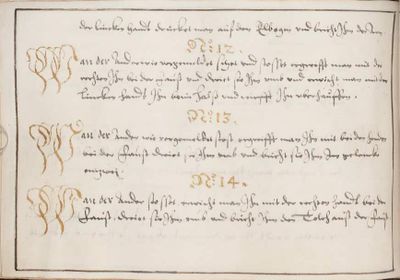 der lincken handt drucket man auf den Elbogen und bricht Ihm den Arm
No: 12.
Wan der Ander wie vorgemeldet stost und stosset ergreifft man mit der
rechten Ihn bei der faust und drait sie Ihm umb und erwischt man mit der
lincken handt Ihn beim halß und wirfft Ihn uberhauffen.
No: 13.
Wan der Ander wie vorgemeldet stost ergreifft man Ihn mit beiden henden
bei der faust drait sie Ihm umb und bricht sie Ihm Im gelencke
entzwei
No: 14.
Wan der Ander stosset, erwischt man Ihn mit der rechten handt bei der
faust, drait sie Ihm umb und bricht Ihm den Tolch auß der faust